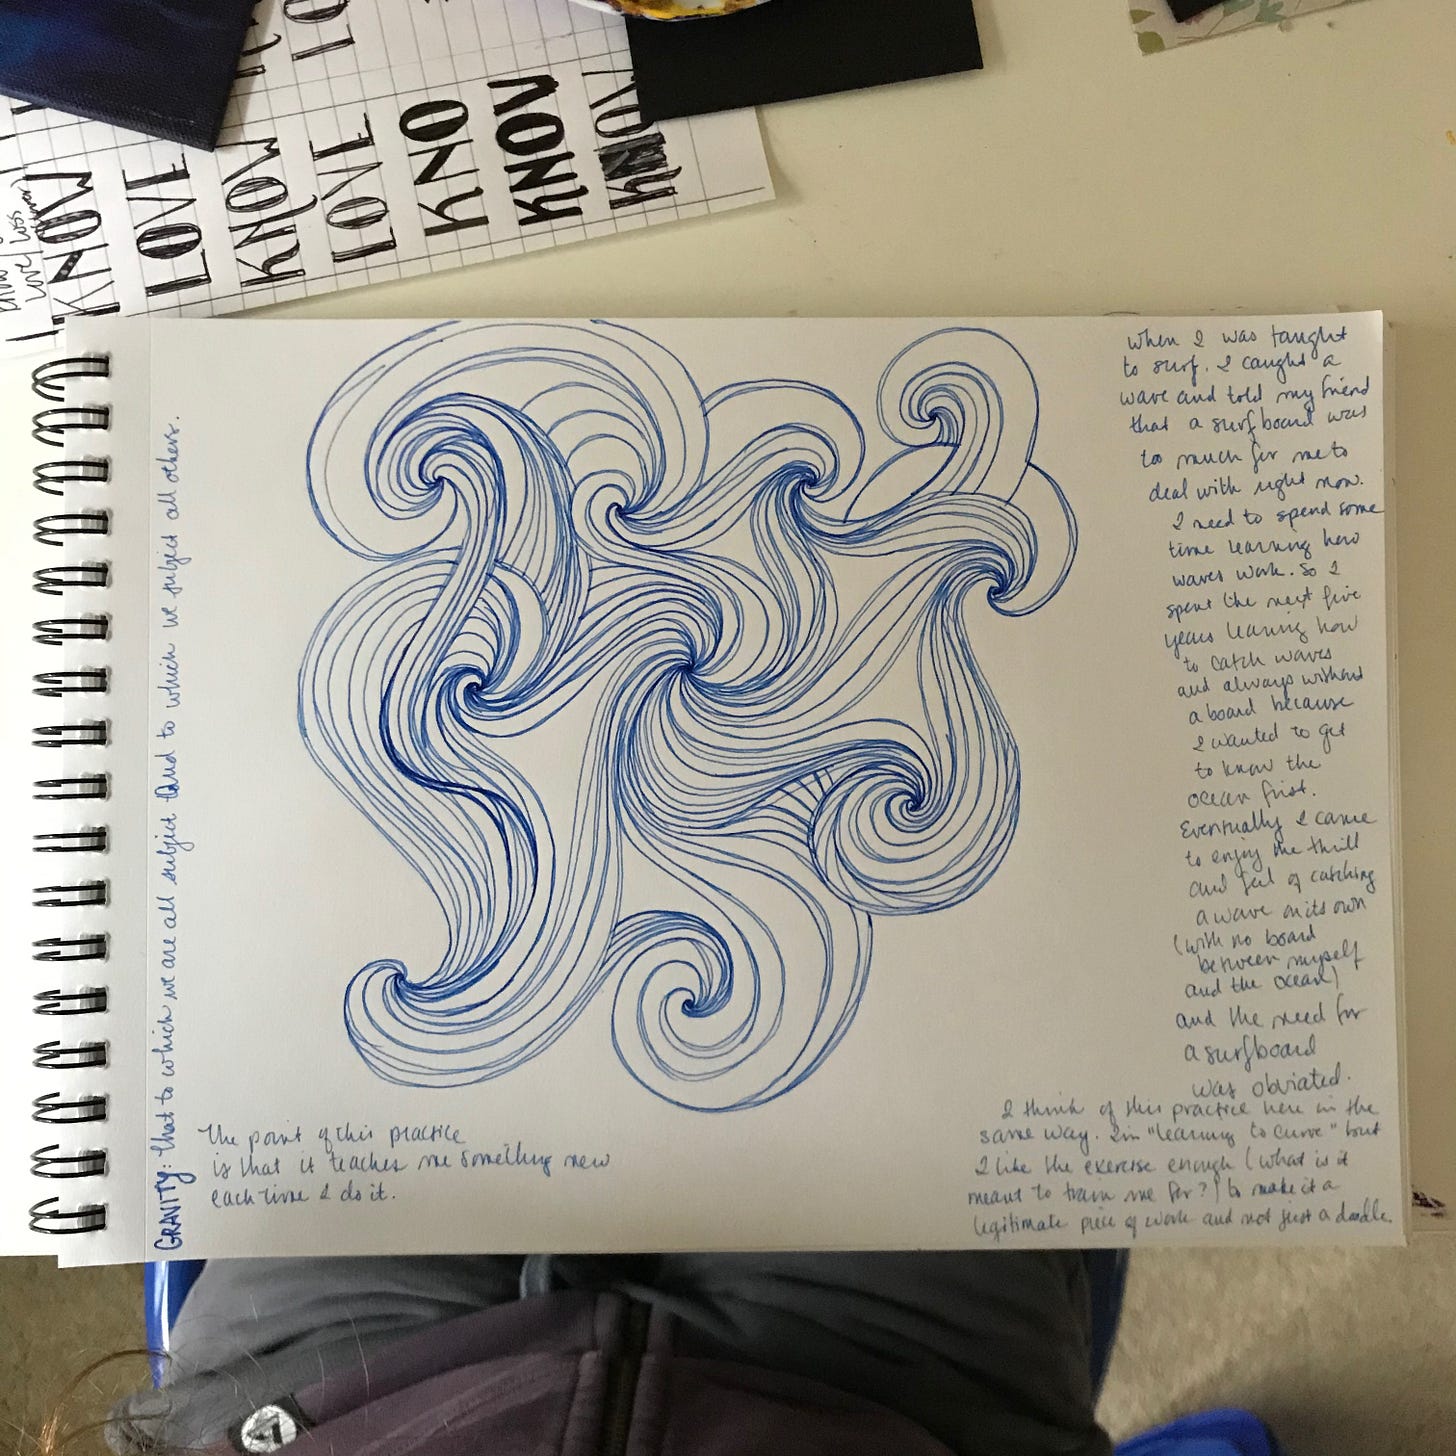 KNOW
LOVE
KNOW
LOVE
KNO
KNOW
KNOW
love/loss
GRAVITY: that to which we are all subject and to which we subject all others.
when I was taught
to surf. I caught a
wave and told my friend
that a surfboard was
too much for me to
deal with right now.
I need to spend some
time learning how
waves work. So I
spent the next five
years learning how
to catch waves
and always without
a board because
I wanted to get
to know the
ocean first.
Eventually I came
to enjoy the thrill
and feel of catching
a wave on its own
(with no board
between myself
and the ocean)
and the need for
a surfboard
was obviated.
I think of this practice here in the
same way. I'm "learning to curve" but
I like the exercise enough (what is it
meant to train me for?) to make it a
legitimate piece of work and not just a doodle.
The point of this practice
is that it teaches me something new
each time I do it.